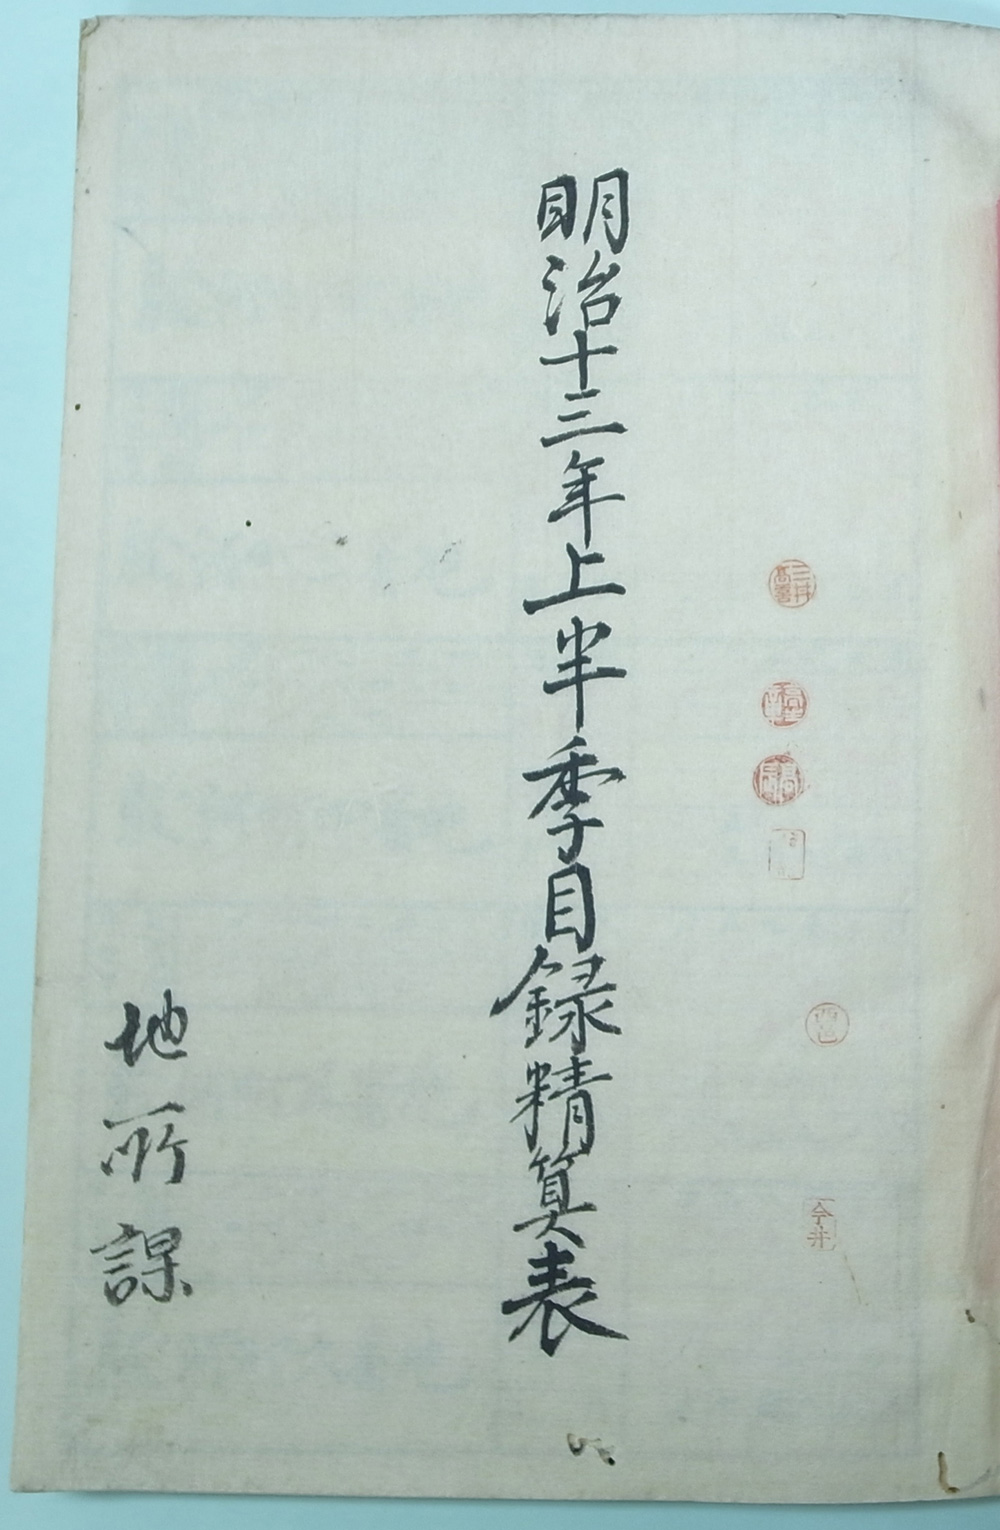 三井
高喜
明治十三年上半季目録精算表
地所課
今井